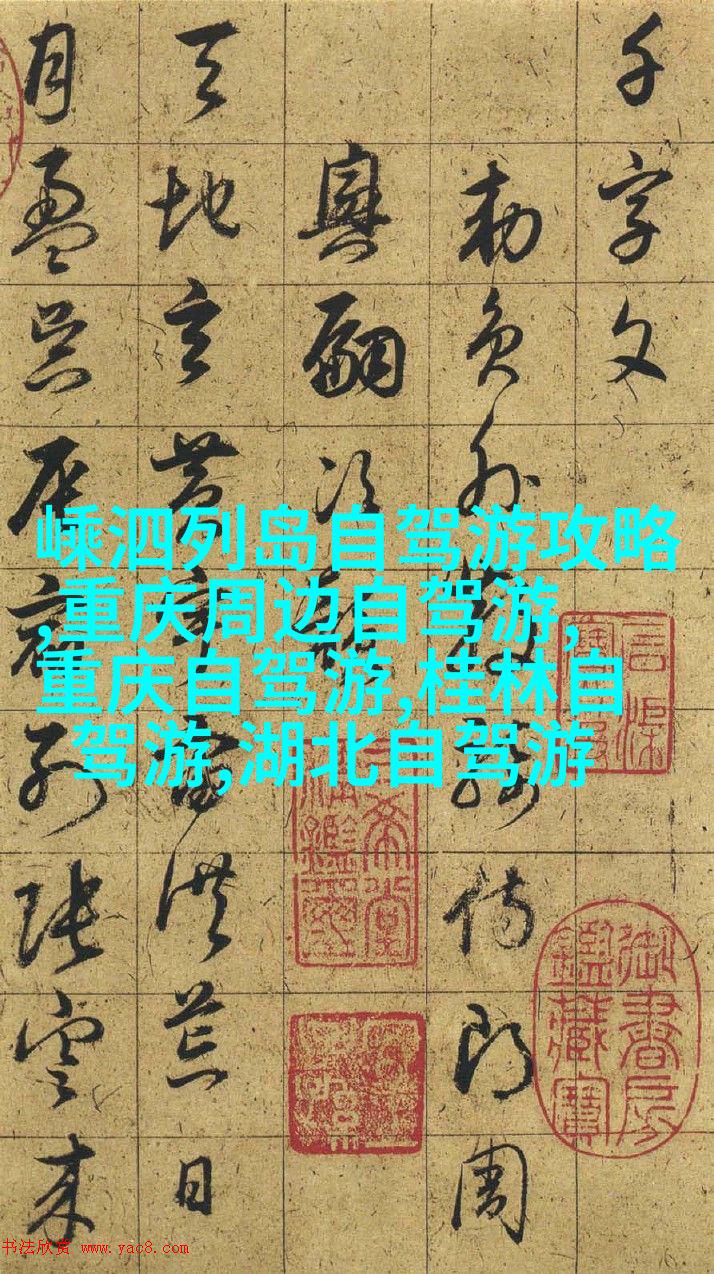 千字文
勅員外散騎侍郎周
興嗣次韻
天地玄黄宇宙洪荒日
月盈昃辰宿列張雲来
嵊泗列岛自驾游攻略
,重庆周边自驾游,
重庆自驾游,桂林自
驾游,湖北自驾游
三希堂
精鑑璽
御書房
鑑藏寶
书法欣赏 www.yac8.com